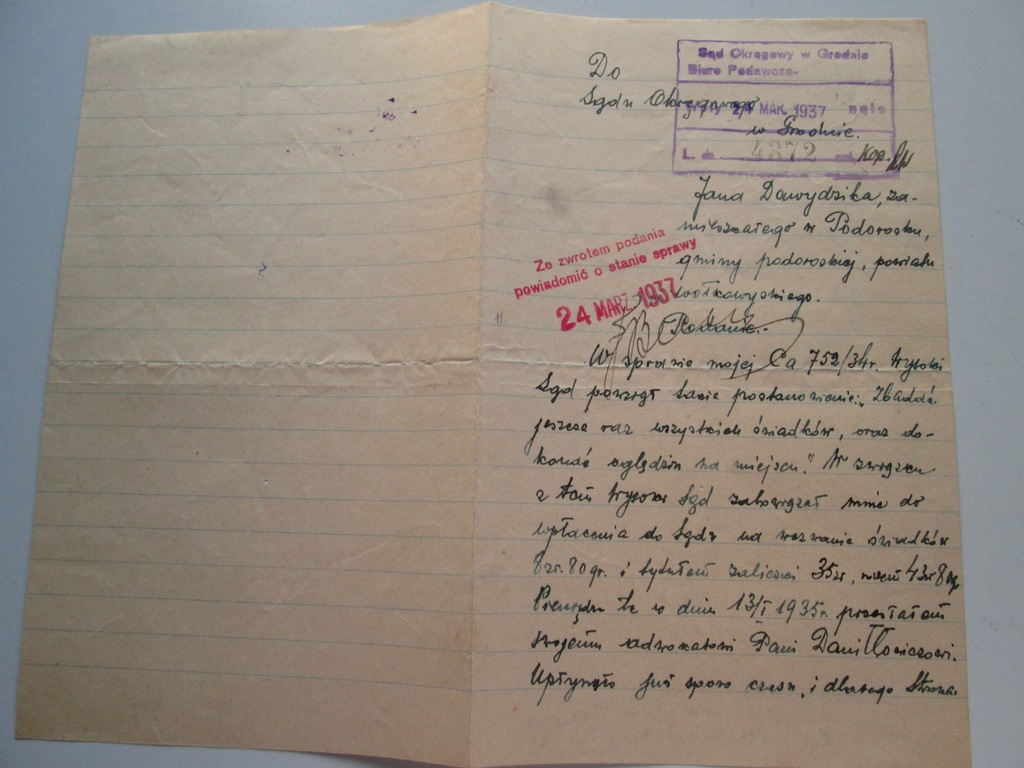 Do
Sądu Okręgowego
w Grodnie.
Sąd Okręgowy w Grodnie
Biuro Podawcze
24 MAR. 1937
L. dz. 4372
Kop.
Jana Dawydzika, za-
mieszkałego w Podorosku,
gminy podoroskiej, powiatu
wołkowyskiego.
Ze zwrotem podania
powiadomić o stanie sprawy
24 MARZ. 1937
Podanie.
W sprawie mojej Ca 752/34 r. Wysoki
Sąd powziął takie postanowienie: „Zbadać
jeszcze raz wszystkich świadków, oraz do-
konać oględzin na miejscu." W związku
z tem Wysoki Sąd zobowiązał mnie do
wpłacenia do Sądu na wezwanie świadków
8 zł. 80 gr. i tytułem zaliczki 35 zł, razem 43 zł 80 gr.
Pieniądze te w dniu 13/I 1935 r. przesłałem
swojemu adwokatowi Panu Daniłłowiczowi.
Upłynęło już sporo czasu, i dlatego Strona